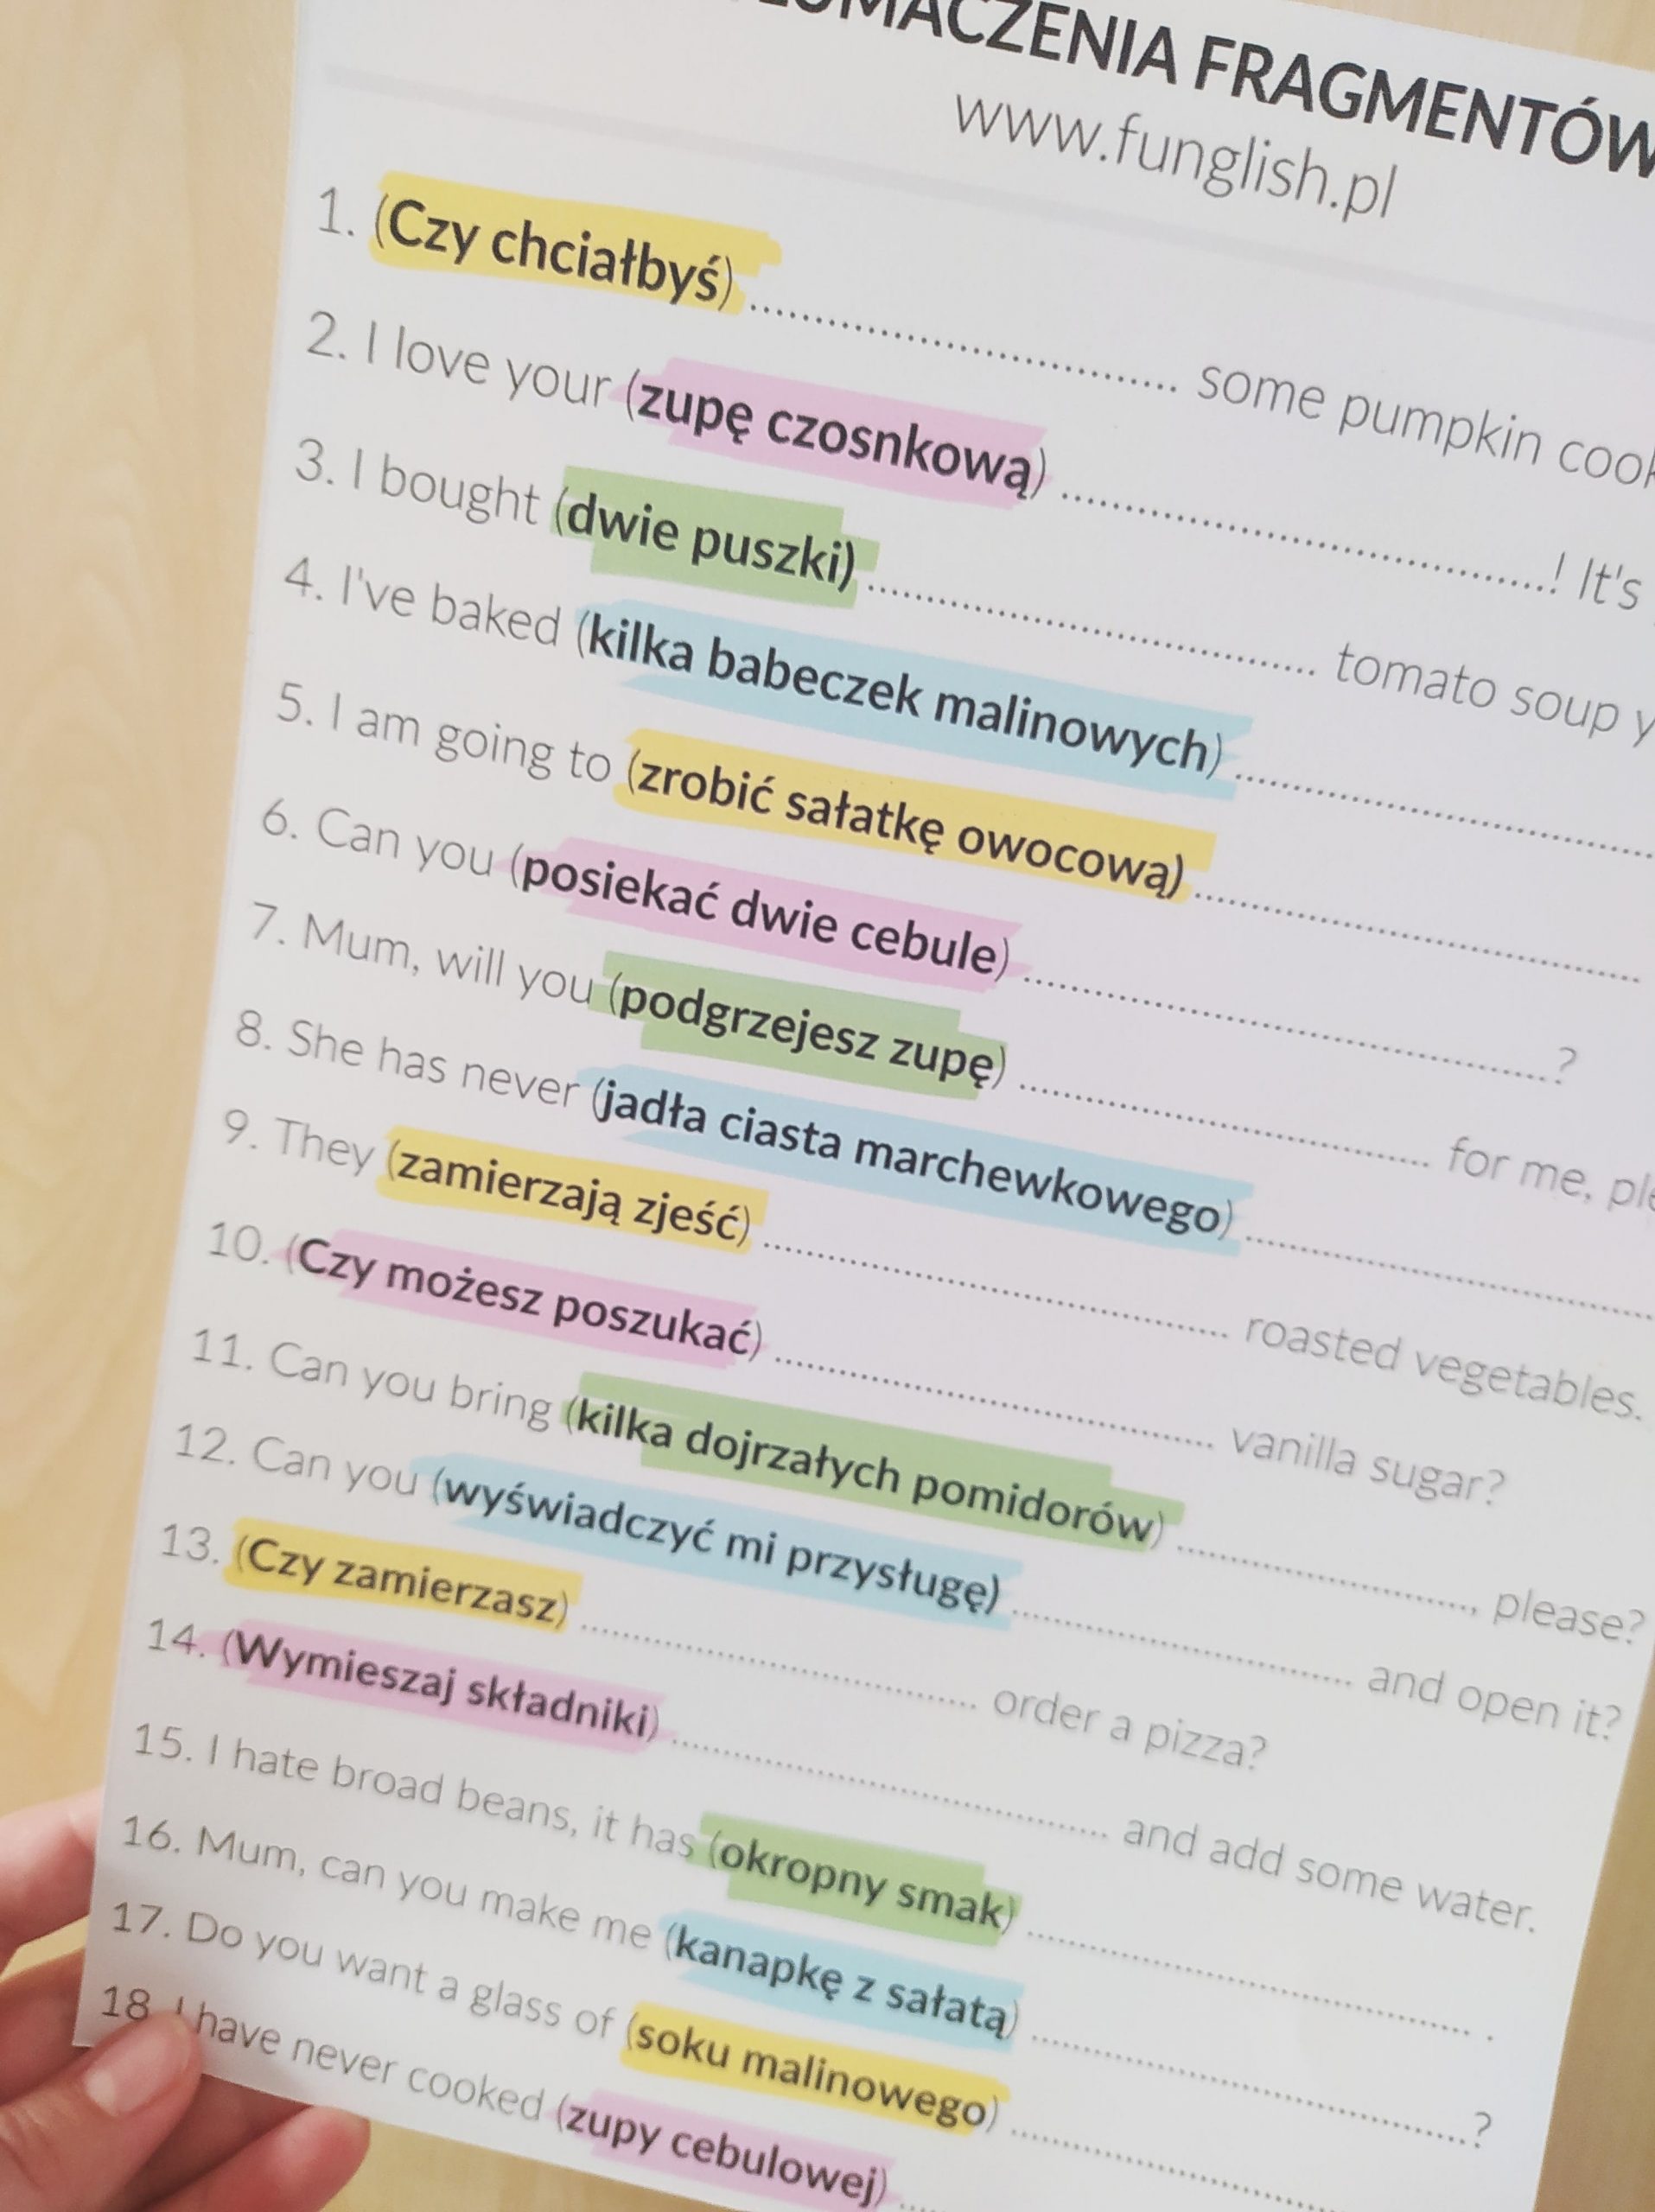 FRAGMENTÓW
www.funglish.pl
1. (Czy chciałbyś) .................................... some pumpkin
2. I love your (zupę czosnkową) ........................................! It's
3. I bought (dwie puszki) ...................................... tomato soup
4. I've baked (kilka babeczek malinowych) ....................................
5. I am going to (zrobić sałatkę owocową) ......................................
6. Can you (posiekać dwie cebule) ............................................?
7. Mum, will you (podgrzejesz zupę) ................................... for me,
8. She has never (jadła ciasta marchewkowego) ...................................
9. They (zamierzają zjeść) ....................................... roasted vegetables.
10. (Czy możesz poszukać) ..................................... vanilla sugar?
11. Can you bring (kilka dojrzałych pomidorów) .........................., please?
12. Can you (wyświadczyć mi przysługę) ............................. and open it?
13. (Czy zamierzasz) .................................. order a pizza?
14. (Wymieszaj składniki) ..................................... and add some water.
15. I hate broad beans, it has (okropny smak) ...................................... .
16. Mum, can you make me (kanapkę z sałatą) .....................................?
17. Do you want a glass of (soku malinowego) ..........................
18. I have never cooked (zupy cebulowej) ....